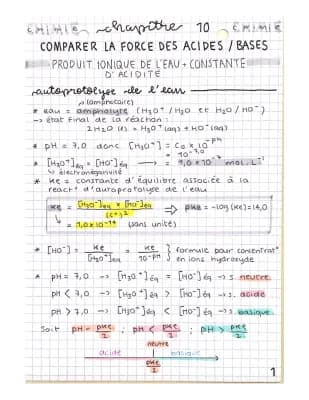 CHIMIE chapitre 10 CHIMIE
COMPARER LA FORCE DES ACIDES / BASES
PRODUIT IONIQUE DE L'EAU + CONSTANTE
D'ACIDITÉ
autoprotolyse de l'eau
(amphotère)
* eau = ampholyte (H₃O⁺ / H₂O et H₂O / HO⁻)
→ état final de la réaction :
2H₂O (l) = H₃O⁺ (aq) + HO⁻ (aq)
* pH = 7,0 donc [H₃O⁺] = C₀ × 10^-pH
= 10^-7,0
* [H₃O⁺]éq = [HO⁻]éq → = 1,0 × 10⁻⁷ mol.L⁻¹
↳ électronégativité
* Ke = constante d'équilibre associée à la
react° d'autoprotolyse de l'eau
Ke = [H₃O⁺]éq × [HO⁻]éq / (c°)² ⇒ pKe = -log (Ke) = 14,0
↳ = 1,0 × 10⁻¹⁴ (sans unité)
* [HO⁻] = Ke / [H₃O⁺]éq = Ke / 10^-pH } formule pour concentrat°
en ions hydroxyde
* pH = 7,0 → [H₃O⁺]éq = [HO⁻]éq → s. neutre
pH < 7,0 → [H₃O⁺]éq > [HO⁻]éq → s. acide
pH > 7,0 → [H₃O⁺]éq < [HO⁻]éq → s. basique
Soit pH = pKe/2 ; pH < pKe/2 ; pH > pKe/2
neutre
acide basique
pKe/2
1